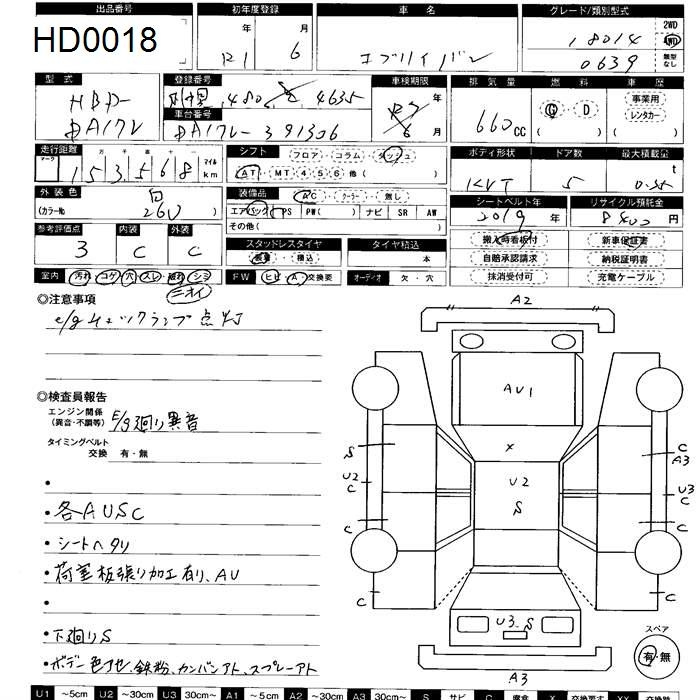 出品番号 初年度登録 車名 グレード/類別型式
HD0018 R1 年 6 月 エブリイバン 18014 0639 2WD 4WD 無型なし
型式 登録番号 車検期限 排気量 燃料 車歴
HBD-DA17V 480 4635 年 6 月 660 cc G・D ( ) 事業用 レンタカー ( )
車台番号
DA17V-391306
走行距離 シフト フロア・コラム・ダッシュ ボディ形状 ドア数 最大積載量
マーク 十 万 千 百 十 一 マイル
153568 km AT・MT 4 5 6 他( ) KVT 5 0.35 t
外装色 白 装備品 AC・クーラー・無し シートベルト年 リサイクル預託金
(カラー№ 26U ) エアバック PS PW( ) ナビ SR AW 2019 年 8400 円
その他( )
参考評価点 内装 外装 スタッドレスタイヤ タイヤ積込 搬入時看板付 新車保証書
3 C C 装着・積込 本 自賠承認請求 納税証明書
室内 汚れ コゲ 穴 スレ 破れ シミ FW ヒビ・A・交換要 オーディオ 欠・穴 抹消受付可 充電ケーブル
ニオイ
◎注意事項
e/gチェックランプ点灯
◎検査員報告
エンジン関係
(異音・不調等) E/g廻り異音
タイミングベルト
交換 有・無
・
・各AUSC
・シートヘタリ
・荷室板張り加工有り、AU
・
・下廻りS
・ボデー色アセ、鉄粉、カンバンアト、スプレーアト
A2
AU1
S X C A3
U2 C U2 S U3 C
C C
C U3.S C
A3
スペア
有・無
U1 ～5cm U2 ～30cm U3 30cm～ A1 ～5cm A2 ～30cm A3 30cm～ S サビ C 腐食 X 交換要す XX 交換済